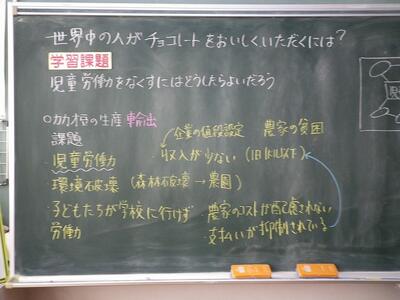 世界中の人がチョコレートをおいしくいただくには?
学習課題
児童労働をなくすにはどうしたらよいだろう
○カカオ豆の生産 輸出
課題
企業の値段設定 農家の貧困
・児童労働 ・収入が少ない (1日1ドル以下)
・環境破壊 (森林破壊→農園)
・子どもたちが学校に行けず 農家のコストが配慮されない
労働 支払いが抑制されている